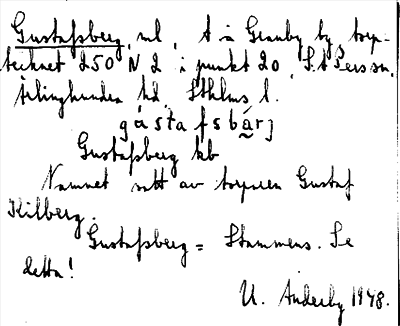 Gustafsberg, nl, t i Granby by, torp-
tecknet 250 N 2 i punkt 20 S.t Persson,
Ärlinghundra hd, Sthlms l.
gástafsbärj
Gustafsberg kb
Namnet satt av torparen Gustaf
Kilberg.
Gustafsberg = Stammens. Se
detta!
U. Änderby 1948.